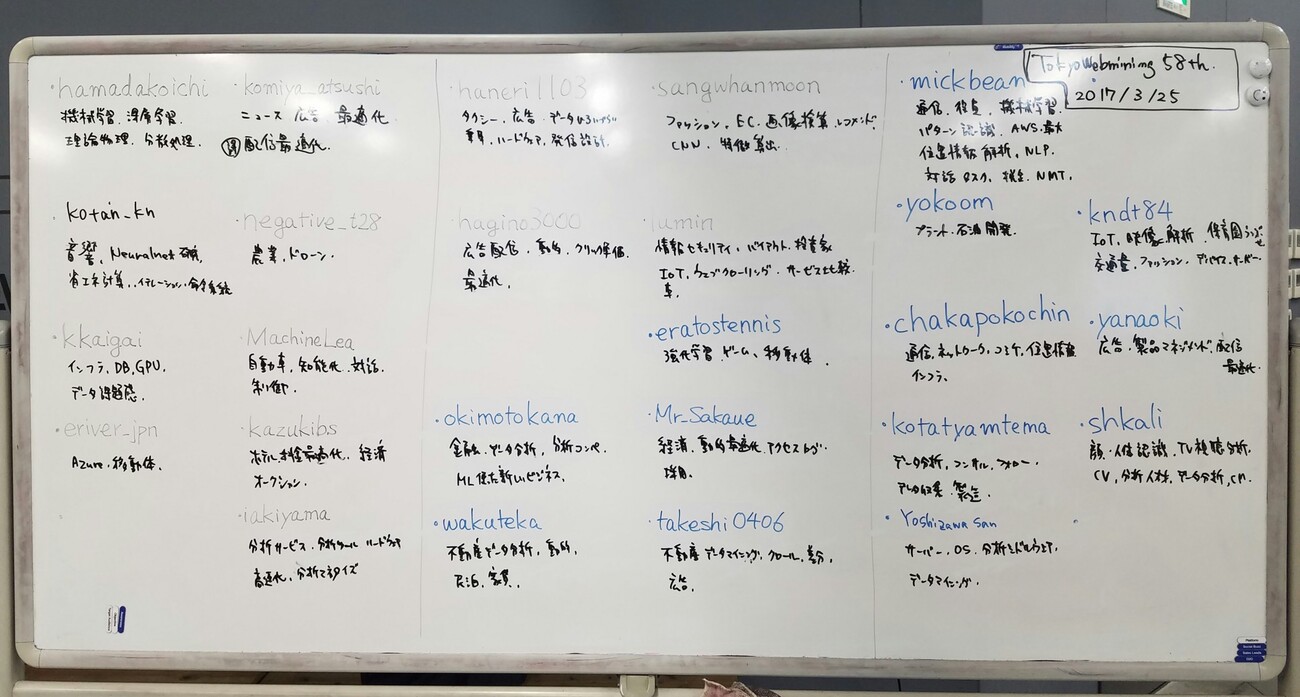 TokyoWebmining 58th.
2017/3/25
・hamadakoichi
機械学習、深層学習
理論物理、分散処理、
・komiya_atsushi
ニュース 広告 最適化
配信最適化、
・kotan_kn
音響、Neuralnet
省エネ計算、イテレーション・命令系統
・negative_t28
農業、ドローン、
・kkaigai
インフラ、DB,GPU,
データ
・MachineLea
自動車、知能化、対話、
制御、
・eriver_jpn
Azure、移動体、
・kazukibs
ホテル、最適化、経済
オークション、
・iakiyama
分析サービス、分析ツール ハードウェア
高速化、分析
・haneri1103
タクシー、広告、データ
乗員、ハードウェア、発信設計、
・sangwhanmoon
ファッション、EC、画像検索、レコメンド、
CNN、特徴算出、
・hagino3000
広告配信、動的、クリック単価、
最適化、
・iumin
情報セキュリティ、バイアウト、投資家
IoT、ウェブクローリング、サービス比較、
車、
・eratostennis
強化学習 ゲーム、移動体、
・okimotokana
金融、データ分析、分析コンペ、
ML使った新しいビジネス、
・Mr_Sakaue
経済、動的最適化、アクセスログ、
採用、
・wakuteka
不動産データ分析、動的、
民泊、家賃、
・takeshi0406
不動産 データマイニング、クロール、差分、
広告、
・mickbean
通信、検索、機械学習、
パターン認識、AWS、最大
位置情報解析、NLP、
対話タスク、NMT、
・yokoom
プラント、石油開発、
・kndt84
IoT、映像解析、保育園
交通量、ファッション、デバイス、サーバー、
・chakapokochin
通信、ネットワーク、コミケ、位置情報
インフラ、
・yanaoki
広告、製品マネジメント、配信
最適化、
・kotatyamtema
データ分析、コンサル、フォロー、
データ収集、製造、
・shkali
顔・人体認識、TV視聴分析、
CV、分析人材、データ分析,CM、
・Yoshizawa san
サーバー、OS、分析ミドルウェア、
データマイニング、